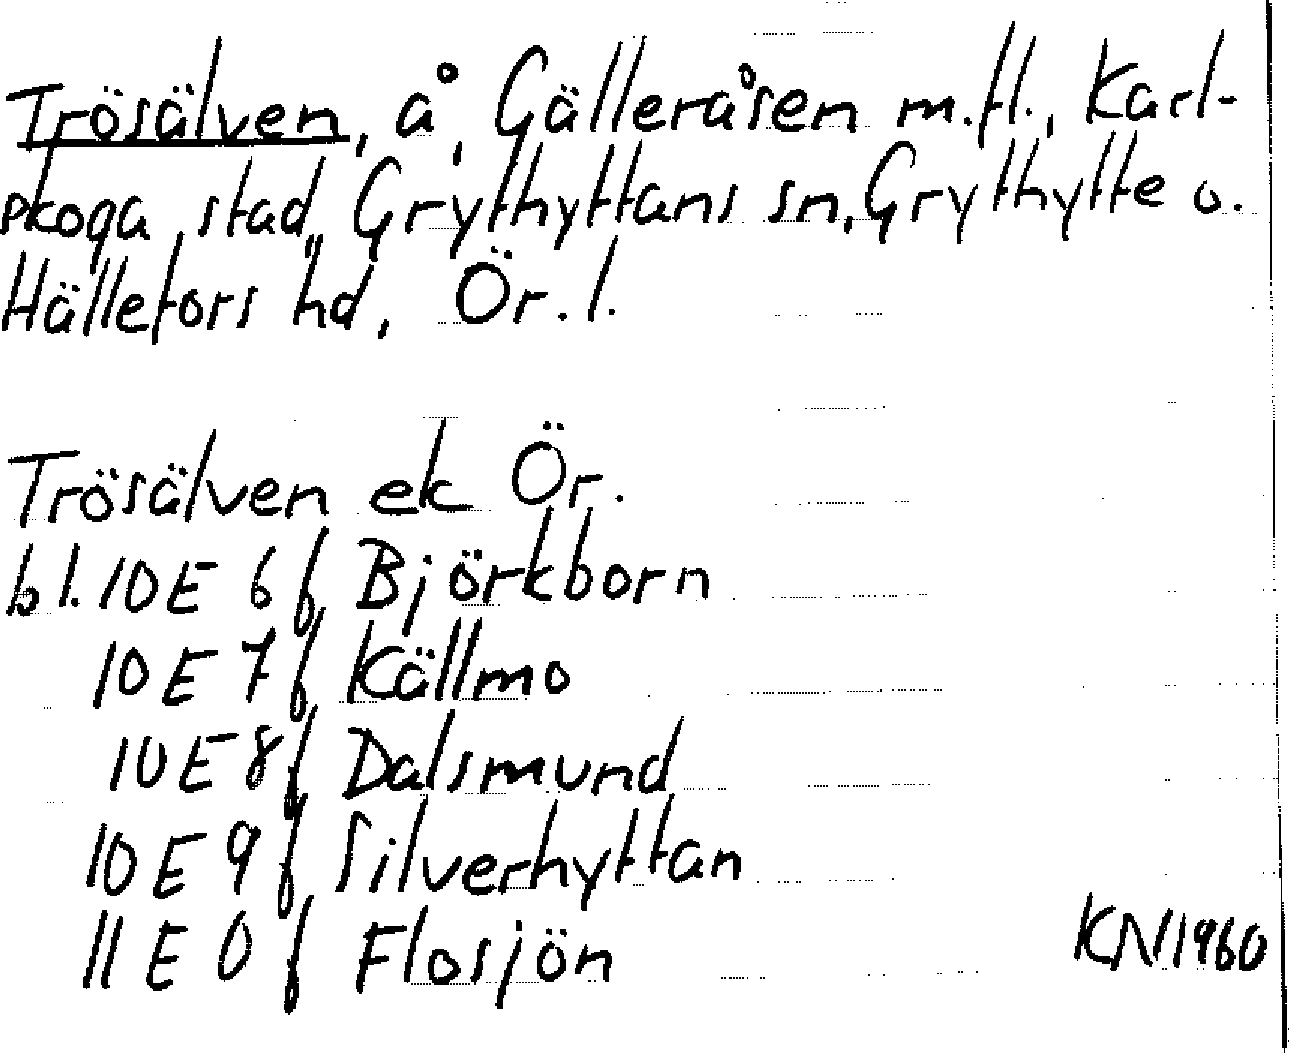 Trösälven, å, Gälleråsen m.fl., Karl-
skoga stad, Grythyttans sn, Grythytte o.
Hällefors hd, Ör. l.
Trösälven ek Ör.
bl. 10E 6f Björkborn
10E 7f Källmo
10E 8f Dalsmund
10E 9f Silverhyttan
11E 0f Flosjön
KN 1960